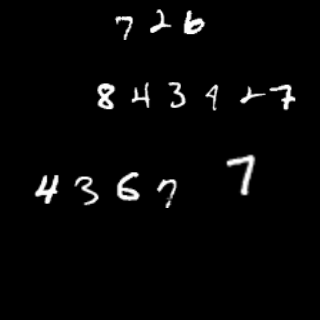 726
843927
4367 7